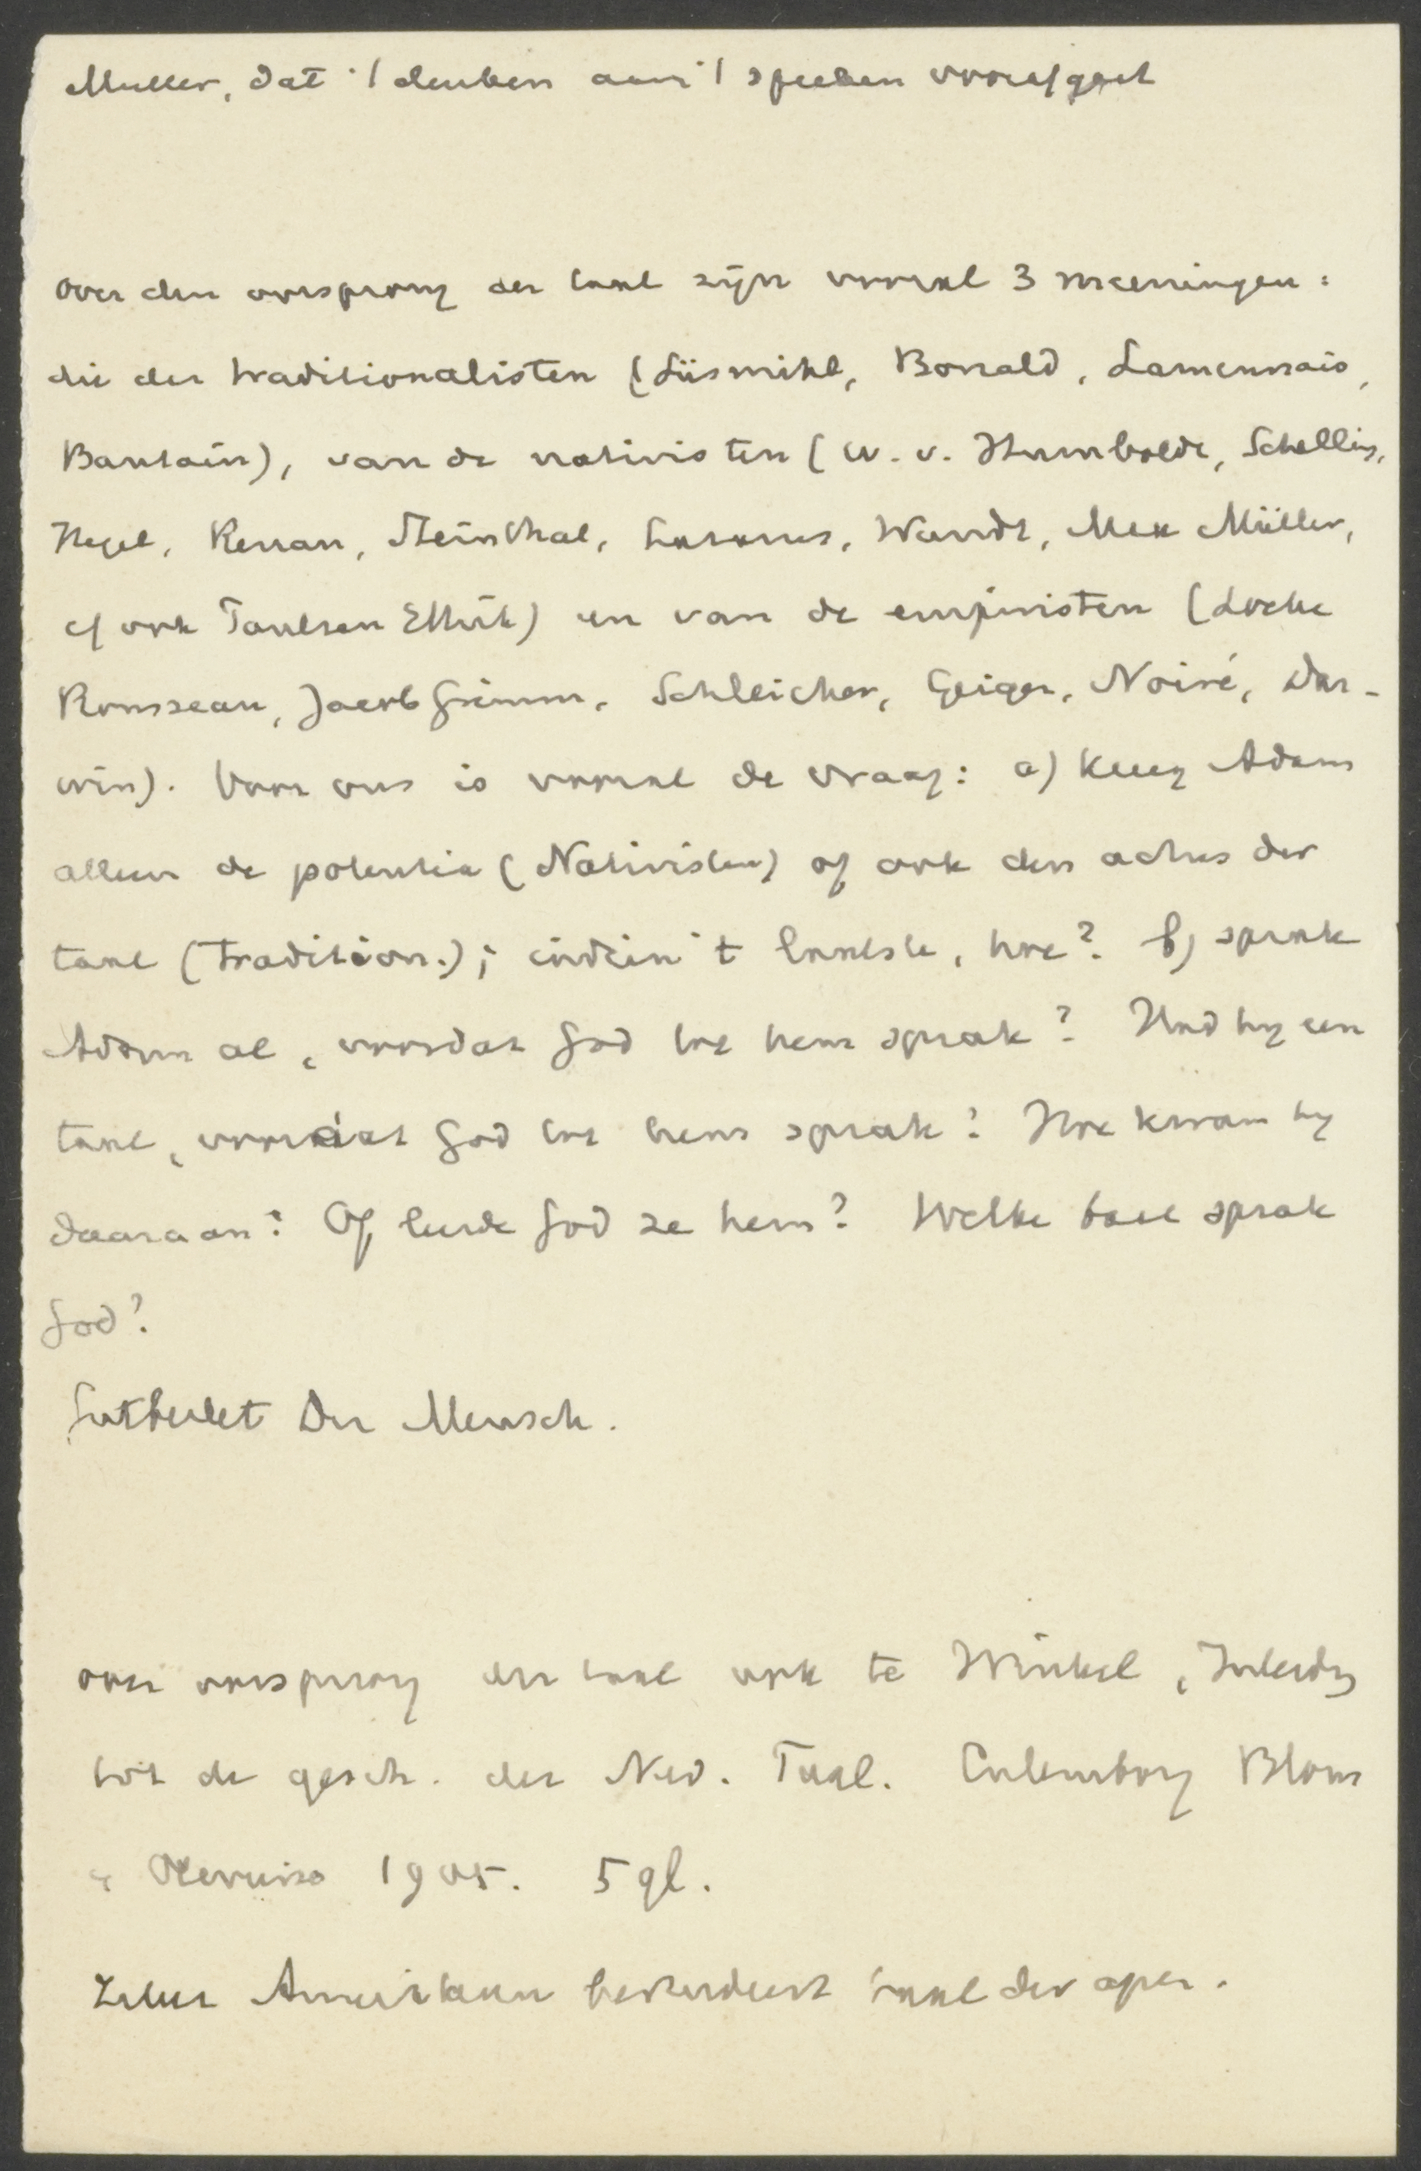 Muller, dat 't denken aan 't spreken voorafgaat
Over den oorsprong der taal zijn vooral 3 meeningen:
die der traditionalisten (Süsmihl, Bonald, Lamennais,
Bautain), van de nativisten (W. v. Humboldt, Schelling,
Hegel, Renan, Steinthal, Lazarus, Wundt, Max Müller,
cf ook Paulsen Ethik) en van de empiristen (Locke
Rousseau, Jacob Grimm, Schleicher, Geiger, Noiré, Dar-
win). Voor ons is vooral de vraag: a) kreeg Adam
alleen de potentia (Nativisten) of ook den actus der
taal (Tradition.); indien 't laatste, hoe? b) sprak
Adam al, voordat God tot hem sprak? Had hij een
taal, voordat God tot hem sprak? Hoe kwam hij
daaraan? Of leerde God ze hem? Welke taal sprak
God?
Gutberlet Der Mensch.
over oorsprong der taal ook te Winkel, Inleidg
tot de gesch. der Ned. Taal. Culemborg Blom
& Olivierse 1905. 5 gl.
Zeker Amerikaan bestudeert taal der apen.